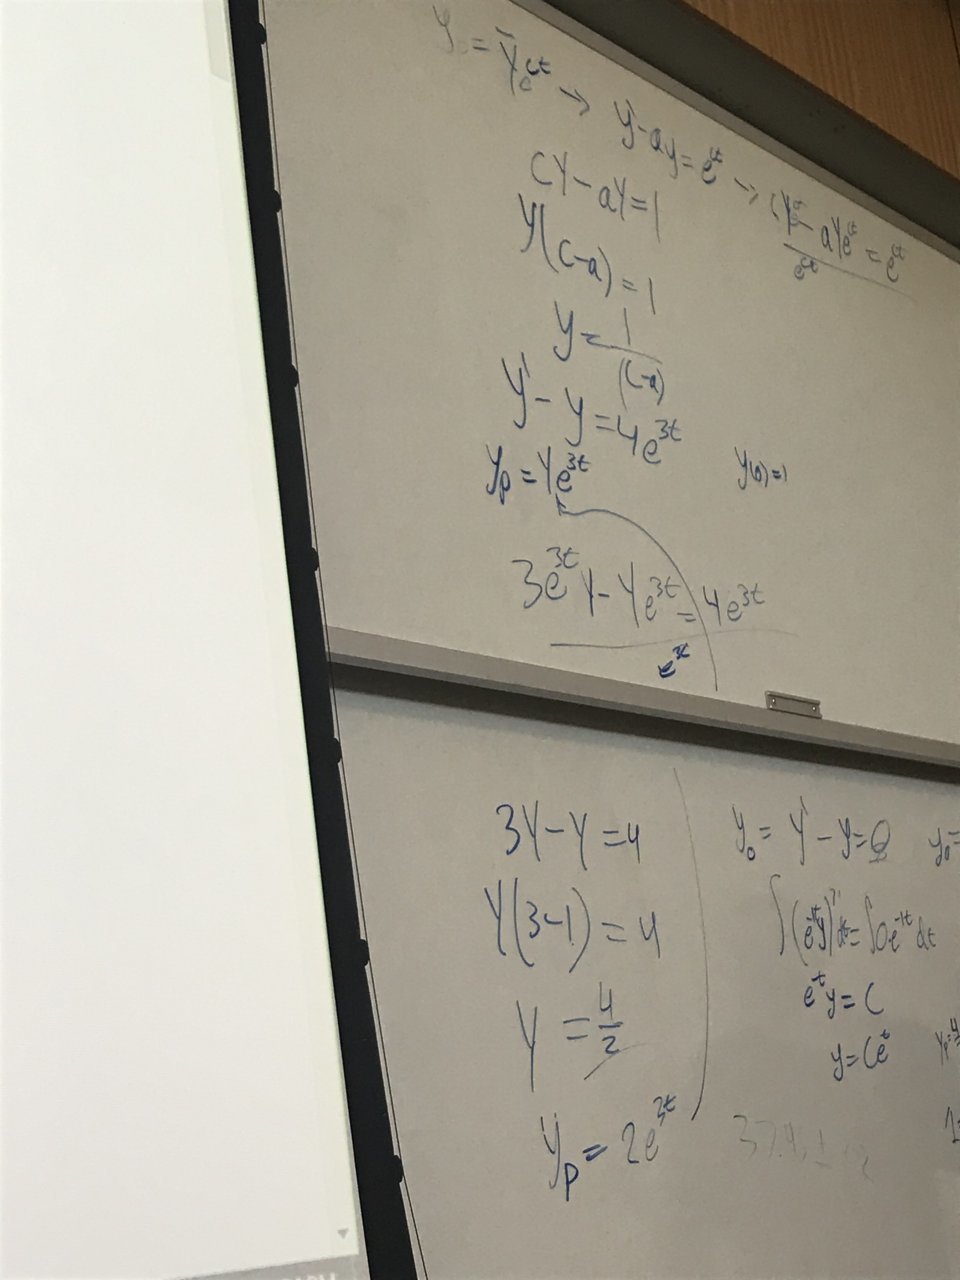 y = Ye^ct → y' - ay = e^ct → cYe^ct - aYe^ct = e^ct
e^ct
cY - aY = 1
Y(c-a) = 1
Y = 1/(c-a)
y' - y = 4e^3t
y(0) = 1
yp = Ye^3t
3e^3t Y - Ye^3t = 4e^3t
e^3t
3Y - Y = 4
Y(3-1) = 4
Y = 4/2
yp = 2e^3t
y₀ = y' - y = 0
∫(e^-1t y)' dt = ∫0e^-1t dt
e^-t y = C
y = Ce^t